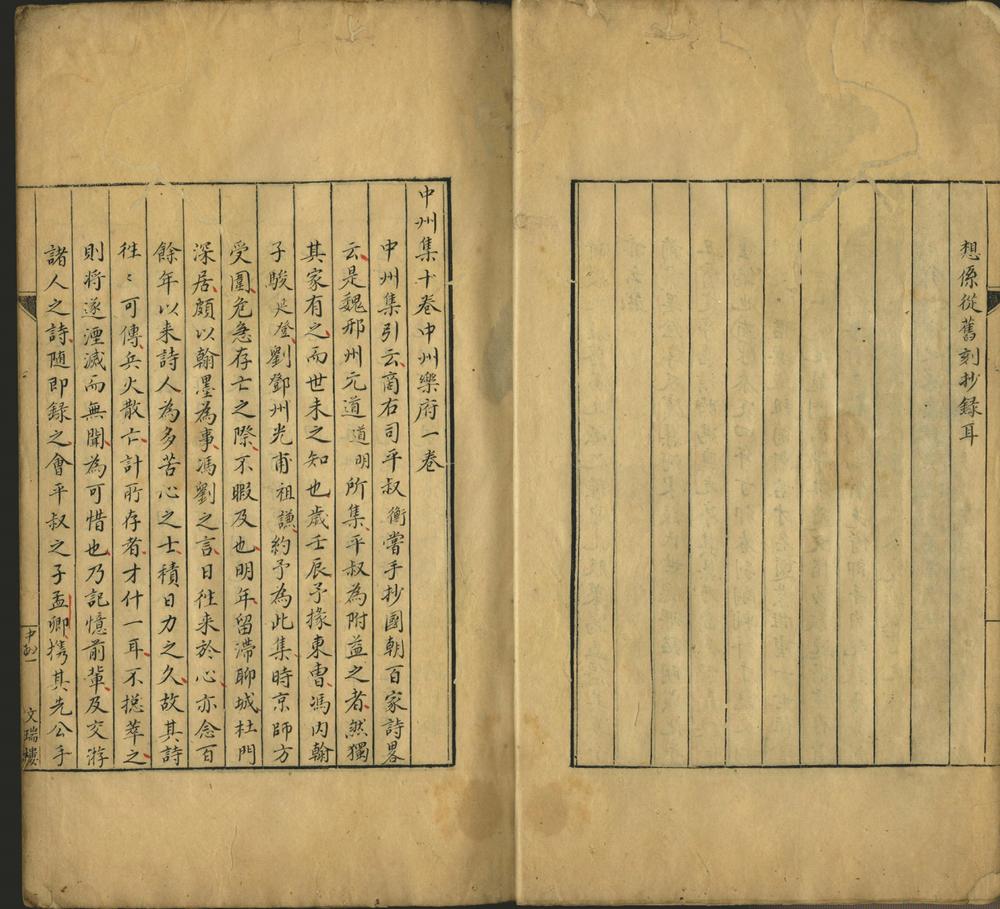 想係從舊刻抄録耳
中州集十卷中州樂府一卷
中州集引云商右司平叔衡嘗手抄國朝百家詩畧
云是魏邢州元道道明所集平叔為附益之者然獨
其家有之而世未之知也歲壬辰予掾東曹馮内翰
子駿延登劉鄧州光甫祖謙約予為此集時京師方
受圍危急存亡之際不暇及也明年留滯聊城杜門
深居頗以翰墨為事馮劉之言日徃来於心亦念百
餘年以来詩人為多苦心之士積日力之久故其詩
徃〻可傳兵火散亡計所存者才什一耳不摠萃之
則将遂湮滅而無聞為可惜也乃記憶前輩及交游
諸人之詩随即録之會平叔之子孟卿携其先公手
文瑞樓